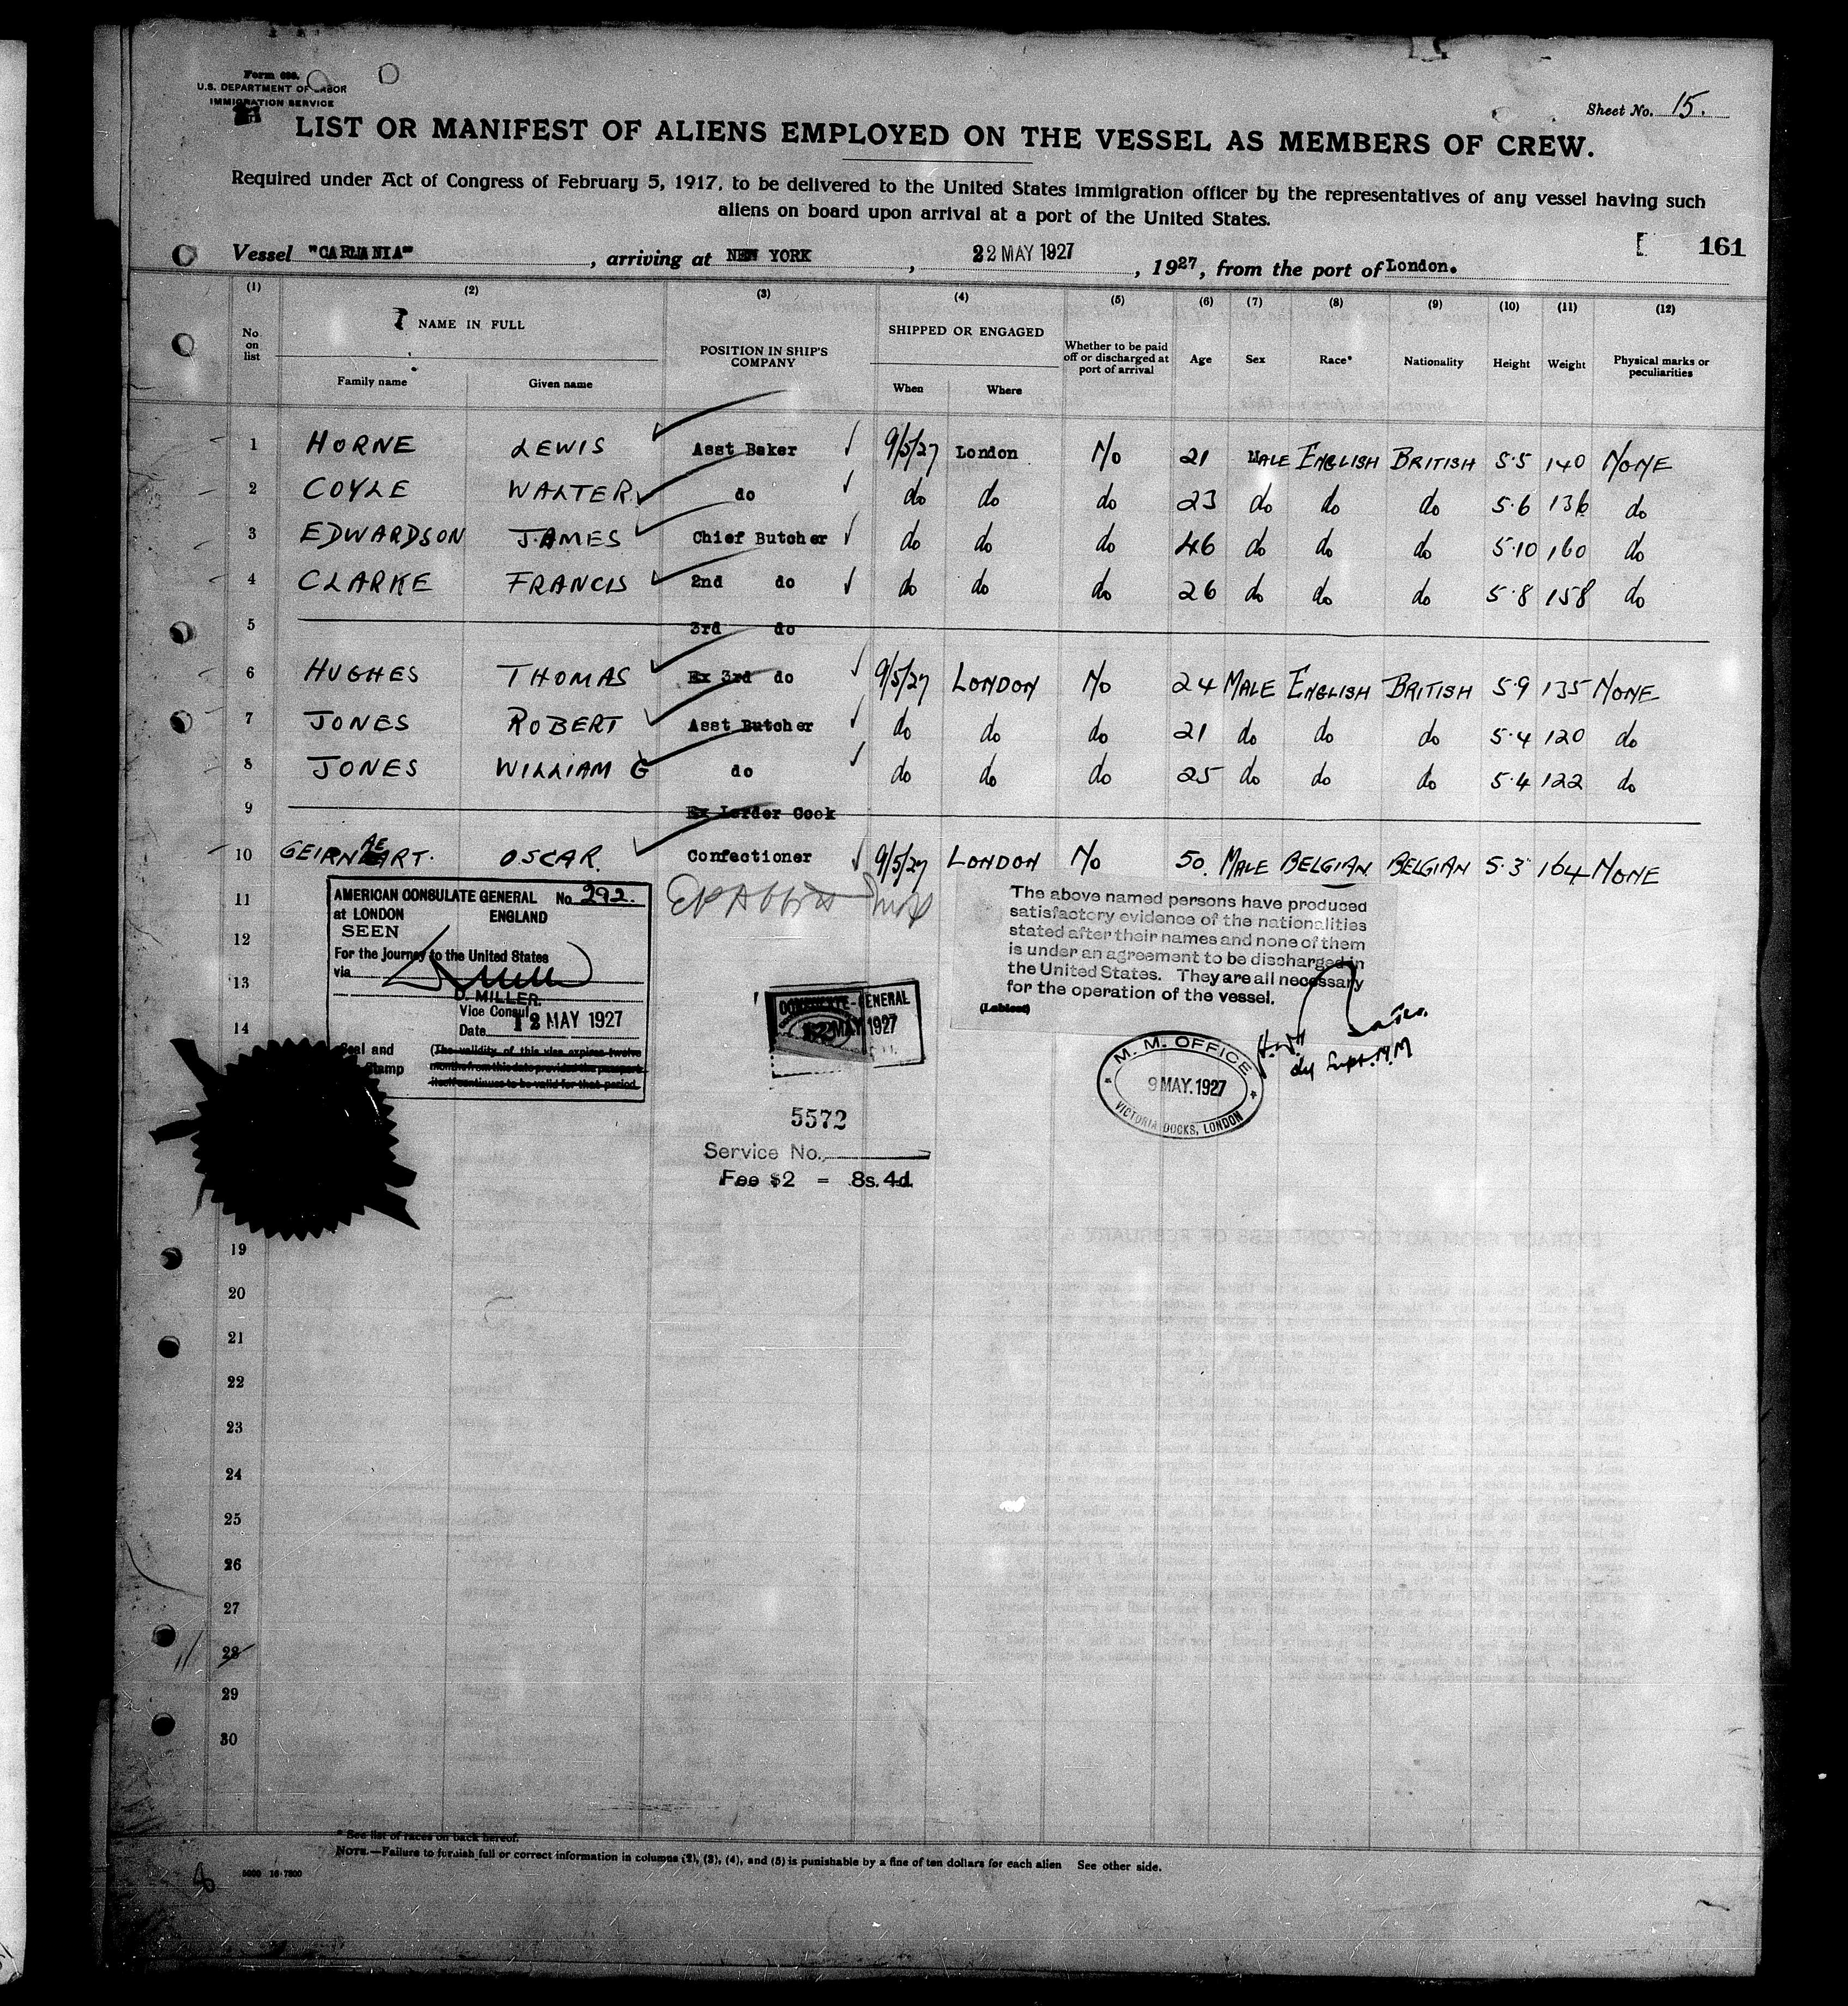 Form 680.
U.S. DEPARTMENT OF LABOR
IMMIGRATION SERVICE
Sheet No. 15.
LIST OR MANIFEST OF ALIENS EMPLOYED ON THE VESSEL AS MEMBERS OF CREW.
Required under Act of Congress of February 5, 1917, to be delivered to the United States immigration officer by the representatives of any vessel having such
aliens on board upon arrival at a port of the United States.
161
Vessel "CARMANIA", arriving at NEW YORK, 22 MAY 1927, 1927, from the port of London.
(1) (2) (3) (4) (5) (6) (7) (8) (9) (10) (11) (12)
No. on list NAME IN FULL Family name Given name POSITION IN SHIP'S COMPANY SHIPPED OR ENGAGED When Where Whether to be paid off or discharged at port of arrival Age Sex Race* Nationality Height Weight Physical marks or peculiarities
1 HORNE LEWIS Asst Baker 9/5/27 London No 21 MALE ENGLISH BRITISH 5.5 140 NONE
2 COYLE WALTER do do do do 23 do do do 5.6 136 do
3 EDWARDSON JAMES Chief Butcher do do do 46 do do do 5.10 160 do
4 CLARKE FRANCIS 2nd do do do do 26 do do do 5.8 158 do
5 3rd do
6 HUGHES THOMAS Ex 3rd do 9/5/27 LONDON No 24 MALE ENGLISH BRITISH 5.9 135 NONE
7 JONES ROBERT Asst Butcher do do do 21 do do do 5.4 120 do
8 JONES WILLIAM G do do do do 25 do do do 5.4 122 do
9 Ex Larder Cook
10 GEIRNAERT. OSCAR. Confectioner 9/5/27 LONDON No 50. MALE BELGIAN BELGIAN 5.3 164 NONE
11
12
13
14
AMERICAN CONSULATE GENERAL No. 292.
at LONDON ENGLAND
SEEN
For the journey to the United States
via
D. MILLER.
Vice Consul
Date 12 MAY 1927
Seal and
Stamp
(The validity of this visa expires twelve
months from this date provided the passport
itself continues to be valid for that period.
CONSULATE-GENERAL
12 MAY 1927
5572
Service No.
Fee $2 = 8s. 4d.
The above named persons have produced
satisfactory evidence of the nationalities
stated after their names and none of them
is under an agreement to be discharged in
the United States. They are all necessary
for the operation of the vessel.
dy Supt. M M
M. M. OFFICE
9 MAY. 1927
VICTORIA DOCKS, LONDON
19
20
21
22
23
24
25
26
27
28
29
30
* See list of races on back hereof.
NOTE.—Failure to furnish full or correct information in columns (2), (3), (4), and (5) is punishable by a fine of ten dollars for each alien See other side.